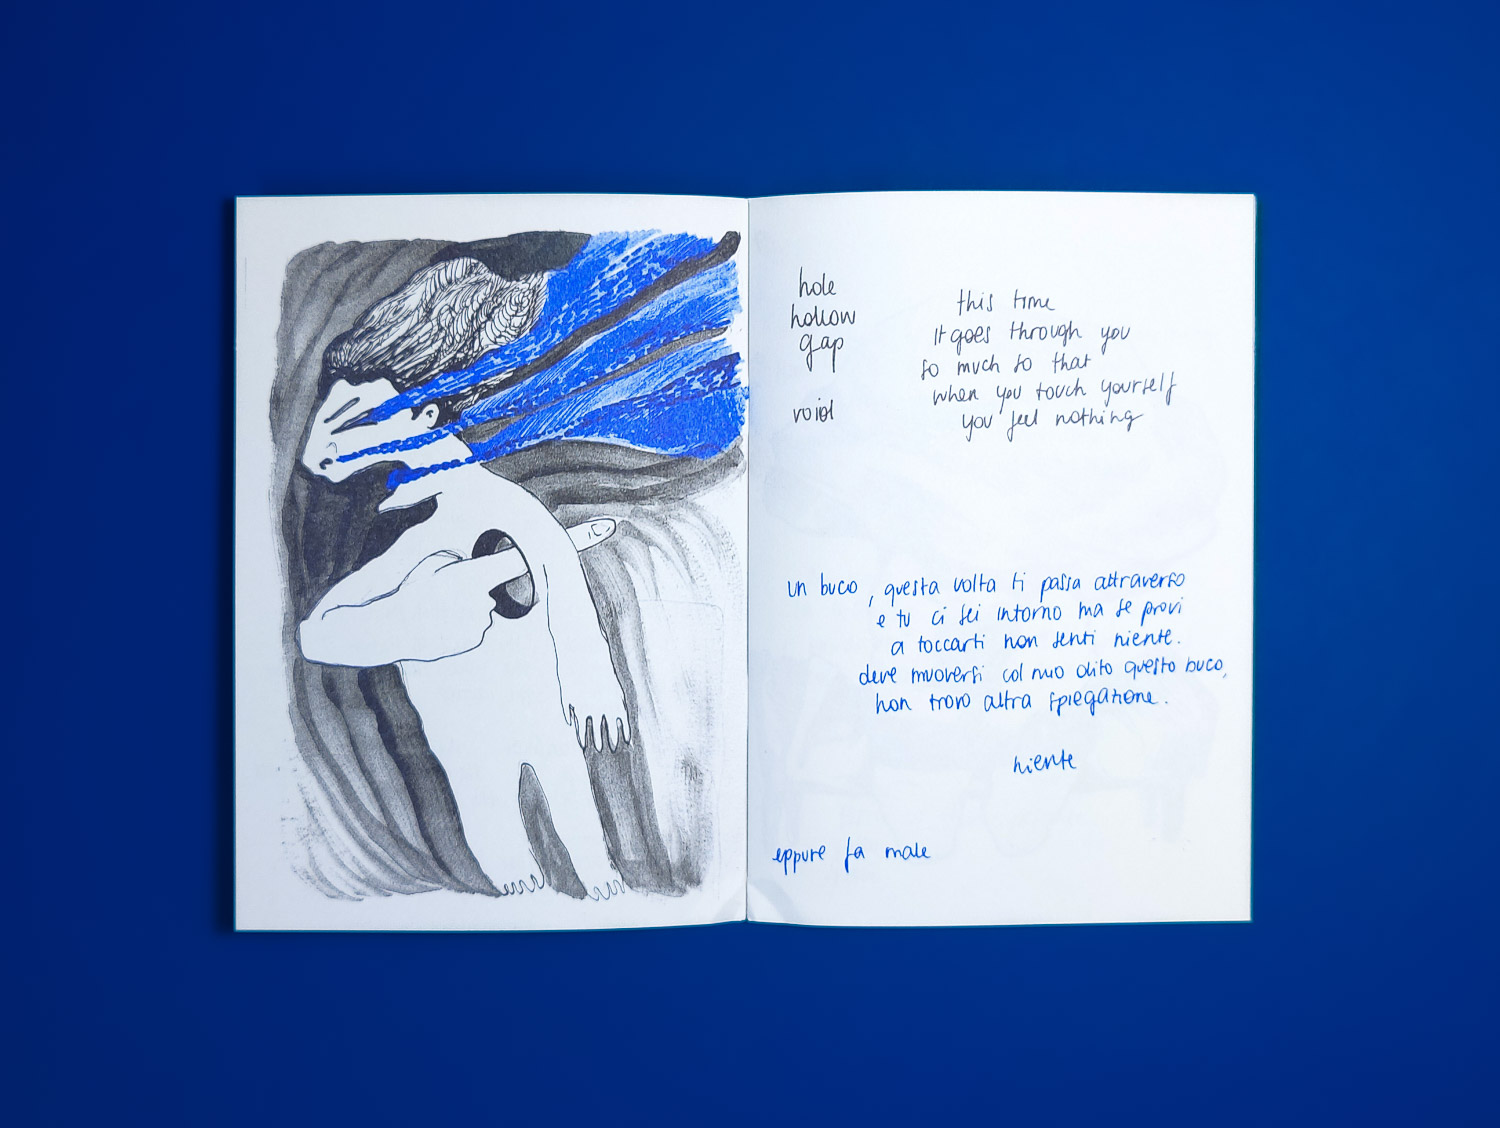 hole
hollow
gap
void
this time
it goes through you
so much so that
when you touch yourself
you feel nothing
un buco, questa volta ti passa attraverso
e tu ci sei intorno ma se provi
a toccarti non senti niente.
deve muoversi col tuo dito questo buco,
non trovo altra spiegazione.
niente
eppure fa male